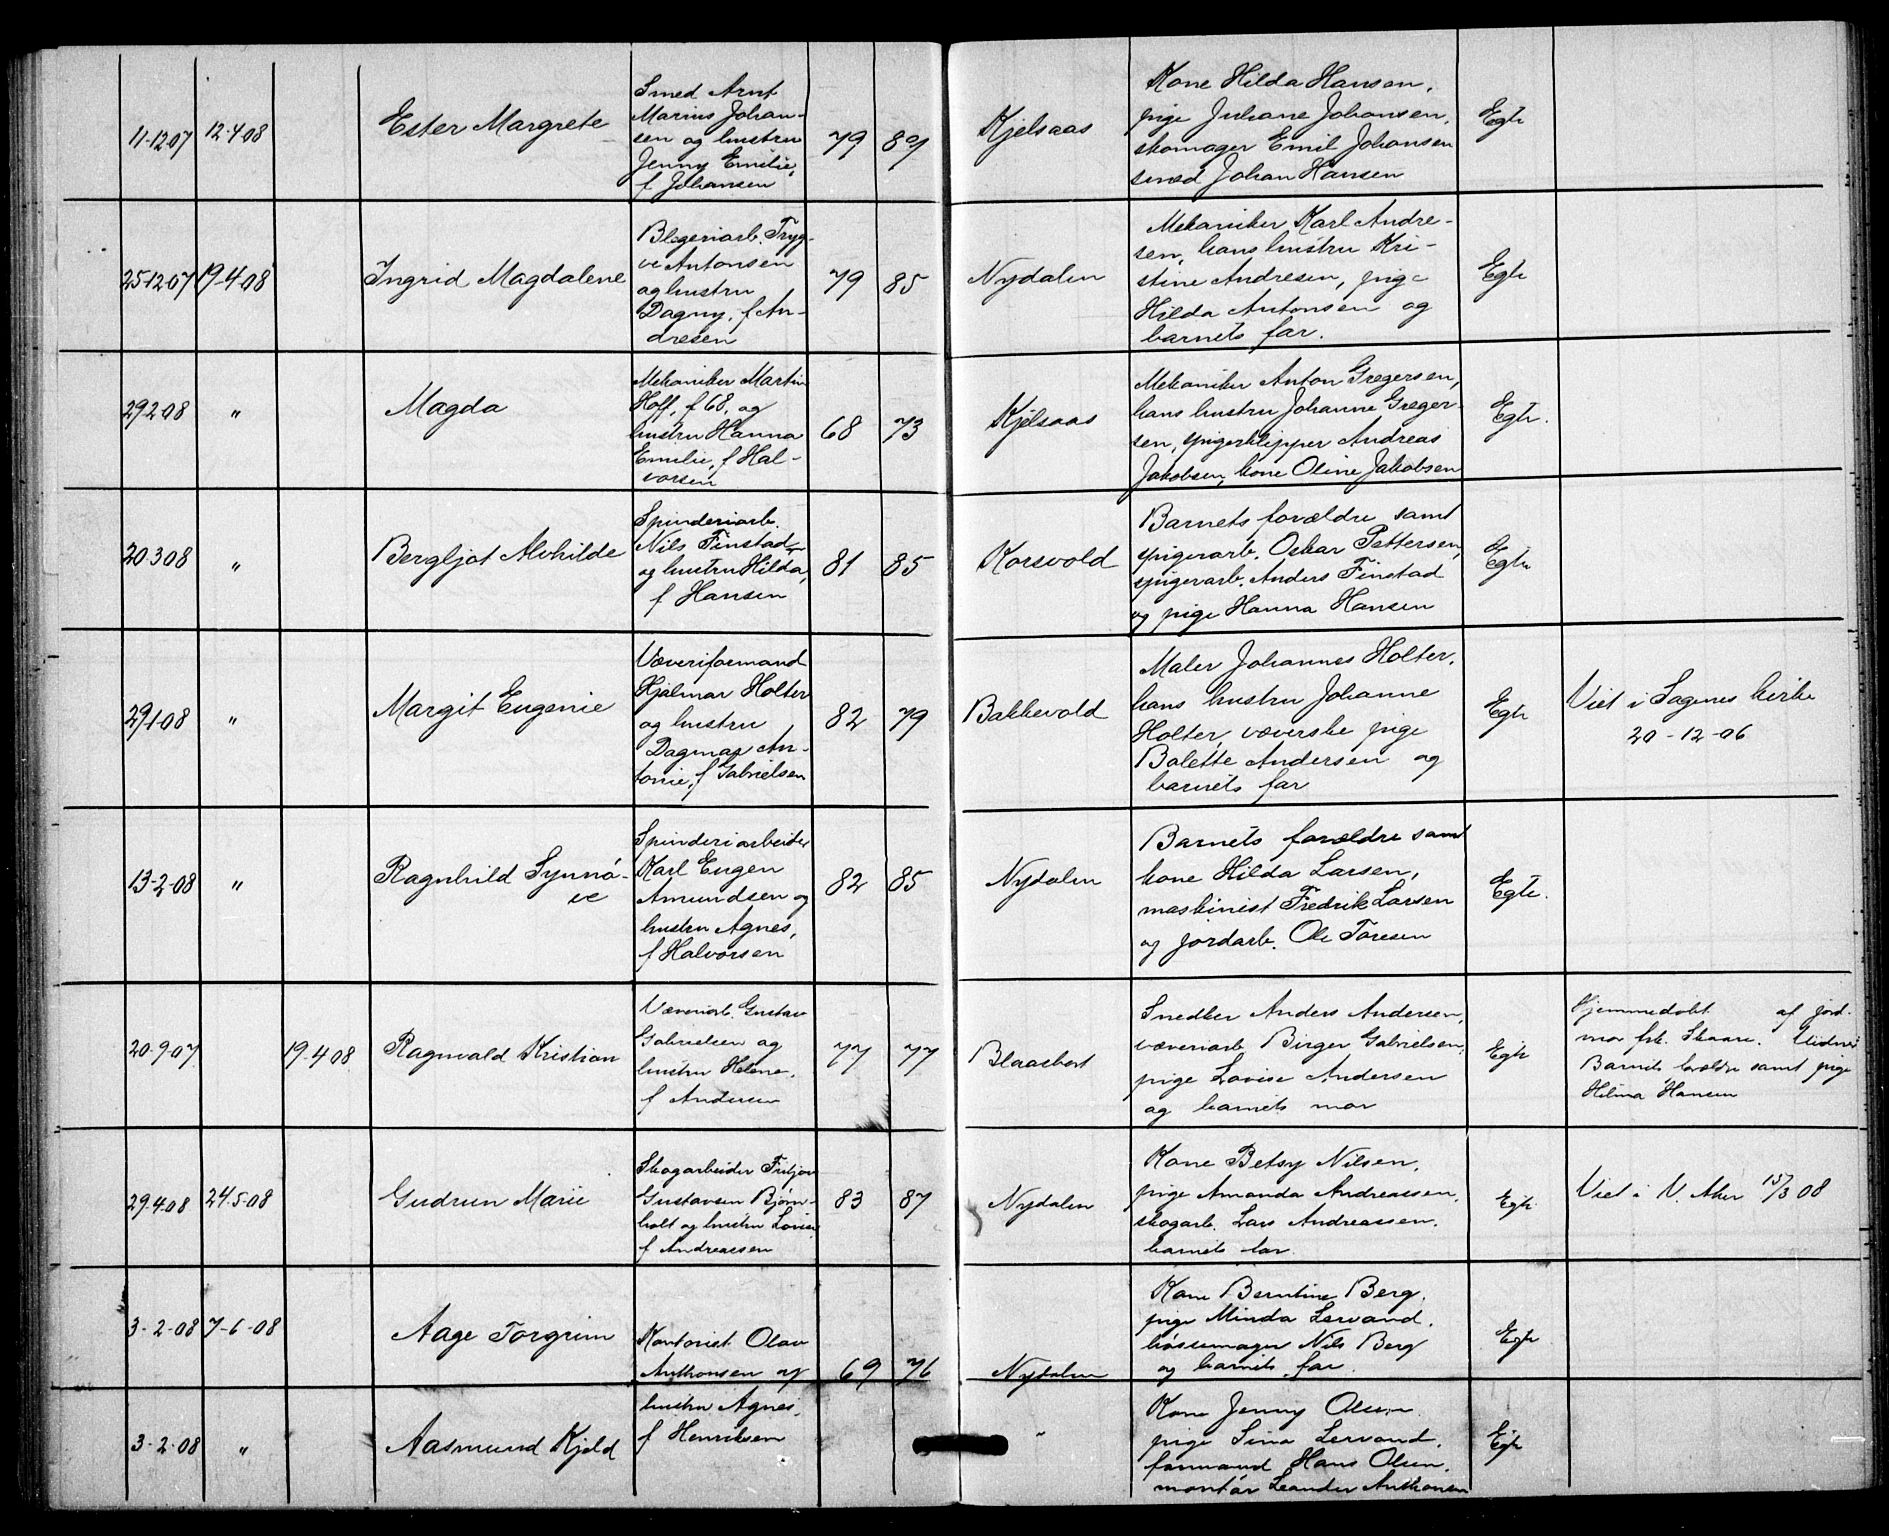 11-12-07 12-4-08 Ester Margrete
Smed Arnt
Marius Johan-
sen og hustru
Jenny Emilie,
f Johansen
79 87 Kjelsaas
Kone Hilda Hansen,
pige Juliane Johansen,
skomager Emil Johansen
smed Johan Hansen
Egte
25-12-07 19-4-08 Ingrid Magdalene
Blegeriarb. Tryg-
ve Antonsen
og hustru
Dagny, f An-
dresen
79 85 Nydalen
Mekaniker Karl Andre-
sen, hans hustru Kri-
stine Andresen, pige
Hilda Antonsen og
barnets far.
Egte
29-2-08 " Magda
Mekaniker Martin
Hoff, f 68, og
hustru Hanna
Emilie, f Hal-
vorsen
68 73 Kjelsaas
Mekaniker Anton Gregersen,
hans hustru Johanne Greger-
sen, spigerklipper Andreas
Jakobsen, kone Oline Jakobsen
Egte.
20-3-08 " Bergljot Alvhilde
Spinderiarb.
Nils Finstad
og hustru Hilda,
f Hansen
81 85 Korsvold
Barnets forældre samt
spigerarb. Oskar Pettersen,
spigerarb. Anders Finstad
og pige Hanna Hansen
Egte
29-1-08 " Margit Eugenie
Væveriformand
Hjalmar Holter
og hustru
Dagmar An-
tonie, f Gabrielsen
82 79 Bakkevold
Maler Johannes Holter,
hans hustru Johanne
Holter, væverske pige
Bolette Andersen og
barnets far
Egte
Viet i Sagenes kirke
20-12-06
13-2-08 " Ragnhild Synnø-
ve
Spinderiarbeider
Karl Eugen
Amundsen og
hustru Agnes,
f Halvorsen
82 85 Nydalen
Barnets forældre samt
kone Hilda Larsen,
maskinist Fredrik Larsen
og jordarb. Ole Toresen
Egte.
20-9-07 19-4-08 Ragnvald Kristian
Væveriarb. Gustav
Gabrielsen og
hustru Helene,
f Andersen
77 77
Snedker Anders Andersen,
væveriarb Birger Gabrielsen,
pige Lovise Andersen
og barnets mor
Egte
Hjemmedøbt af jord-
mor frk. Skaare.
Barnets forældre samt pige
Hilma Hansen
29-4-08 24-5-08 Gudrun Marie
Skogarbeider Fritjov
Gustavsen Bjørn-
holt og hustru Lovise
f Andreassen
83 87 Nydalen
Kone Betsy Nilsen,
pige Amanda Andreassen,
skogarb. Lars Andreassen,
barnets far.
Egte
Viet i V. Aker 15/3 08
3-2-08 7-6-08 Aage Torgrim
Kontorist Olav
Anthonsen og
69 76 Nydalen
Kone Berntine Berg,
pige Minda Lervand,
bøssemager Nils Berg
og barnets far.
Egte
3-2-08 " Aasmund Kjeld
hustru Agnes,
f Henriksen
"
Kone Jenny Olsen
pige Sina Lervand,
formand Hans Olsen,
montør Leander Anthonsen
Egte